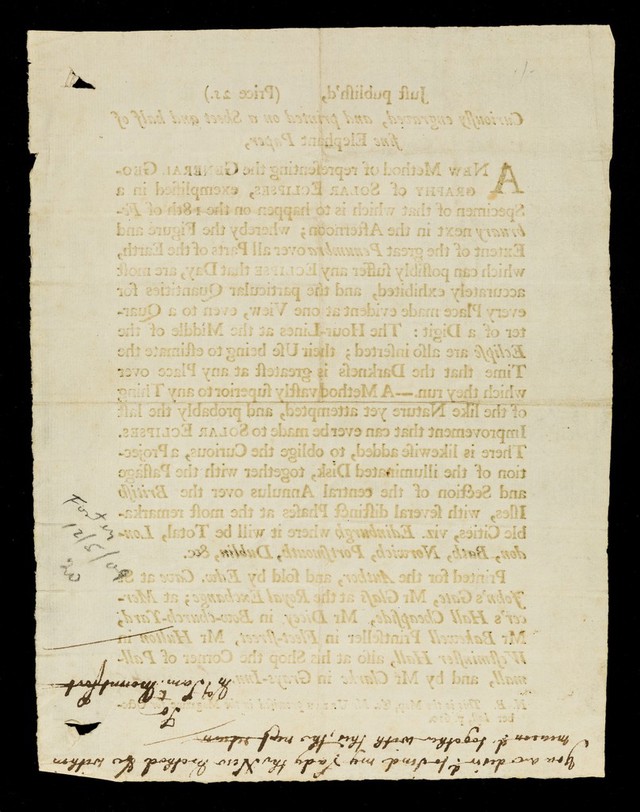 Juſt publiſh'd, (Price 2s.)
Curiouſly engraved, and printed on a Sheet and half of
fine Elephant Paper,
A NEW Method of repreſenting the GENERAL GEO-
GRAPHY of SOLAR ECLIPSES, exemplified in a
Specimen of that which is to happen on the 18th of Fe-
bruary next in the Afternoon; whereby the Figure and
Extent of the great Penumbra over all Parts of the Earth,
which can poſſibly ſuffer any ECLIPSE that Day, are moſt
accurately exhibited, and the particular Quantities for
every Place made evident at one View, even to a Quar-
ter of a Digit: The Hour-Lines at the Middle of the
Eclipſe are alſo inſerted; their Uſe being to eſtimate the
Time that the Darkneſs is greateſt at any Place over
which they run.—A Method vaſtly ſuperior to any Thing
of the like Nature yet attempted, and probably the laſt
Improvement that can ever be made to SOLAR ECLIPSES.
There is likewiſe added, to oblige the Curious, a Projec-
tion of the illuminated Disk, together with the Paſſage
and Section of the central Annulus over the Britiſh
Iſles, with ſeveral diſtinct Phaſes at the moſt remarka-
ble Cities, viz. Edinburgh where it will be Total, Lon-
don, Bath, Norwich, Portſmouth, Dublin, &c.
Printed for the Author, and ſold by Edw. Cave at St
John's Gate, Mr Glaſs at the Royal Exchange; at Mer-
cer's Hall Cheapſide, Mr Dicey in Bow-church-Yard,
Mr Bakewell Printſeller in Fleet-ſtreet, Mr Hulton in
Weſtminſter Hall, alſo at his Shop the Corner of Pall-
mall, and by Mr Clarke in Grays-Inn.
N. B. The Uſe of this Map, &c. is in the Magazine for
ber
12/5/09
20
You are desir'd to send my Lady the New Method &c within
mention'd together with this, the next return
To
Mr Sam: Mountfort